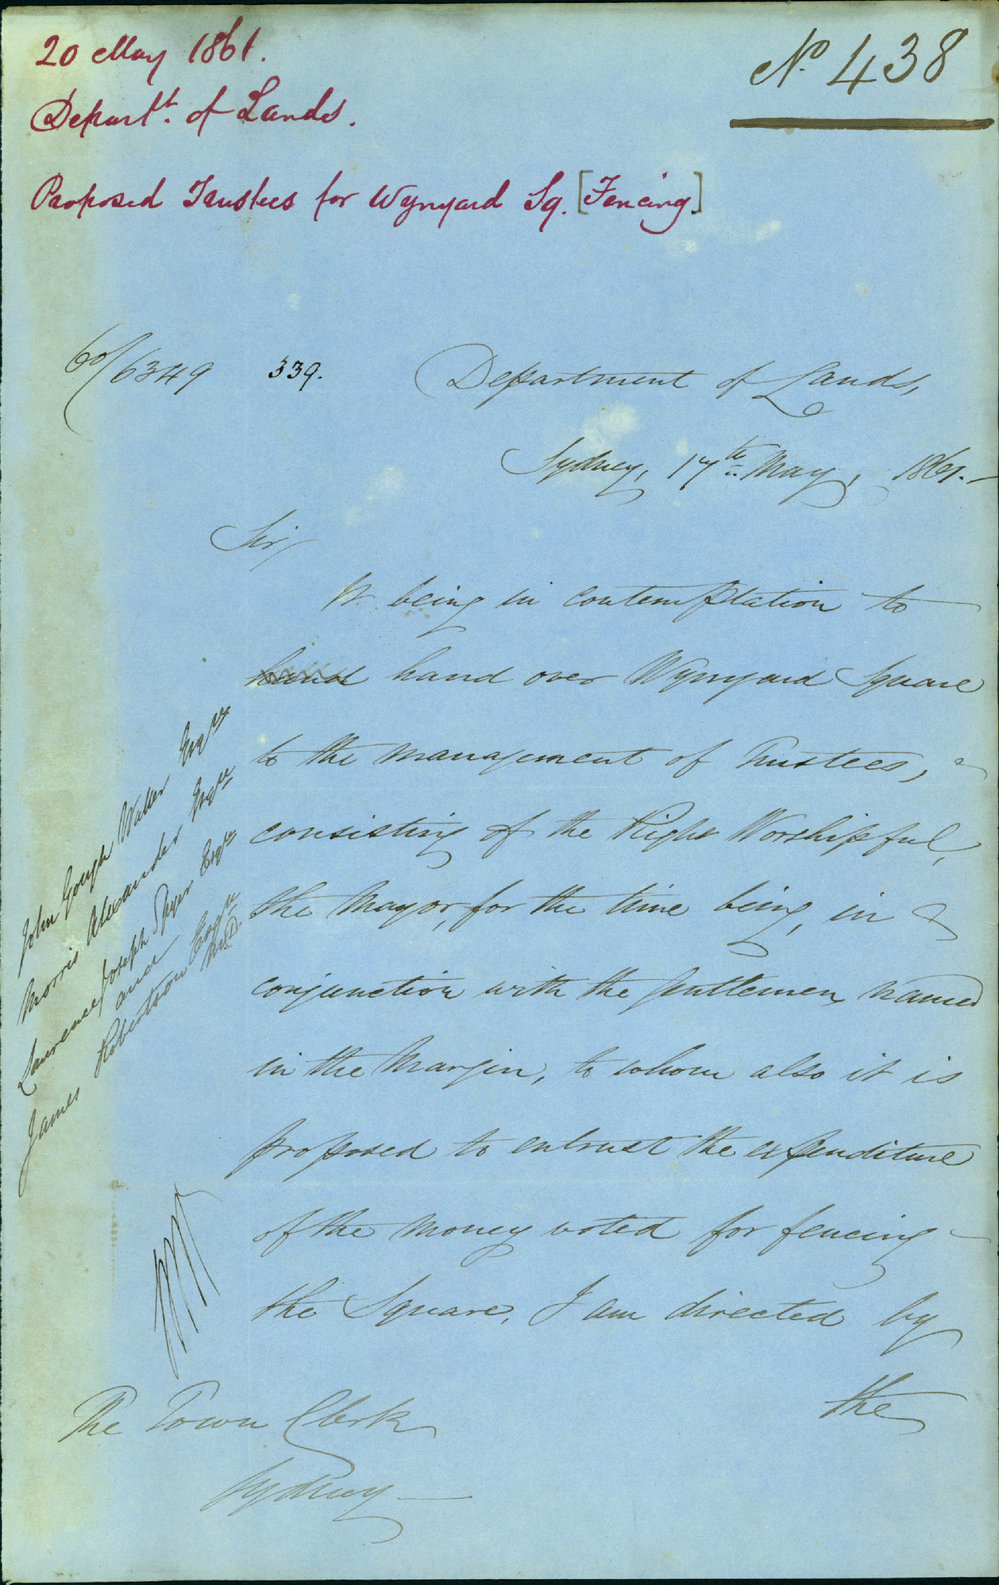 20 May 1861.
Nº 438
Depart.t of Lands.
Proposed Trustees for Wynyard Sq. [Fencing]
60/6349
339.
Department of Lands,
Sydney, 17th May, 1861.
Sir,
It being in contemplation to
hand hand over Wynyard Square
to the management of Trustees,
consisting of the Right Worshipful,
the Mayor, for the time being, in
conjunction with the gentlemen named
in the Margin, to whom also it is
proposed to entrust the expenditure
of the money voted for fencing
the Square, I am directed by
the
John Gough Waller Esqre
Morris Alexander Esqre
Laurence Joseph Spyer Esqre
and
James Robertson Esqre
M.D.
The Town Clerk
Sydney